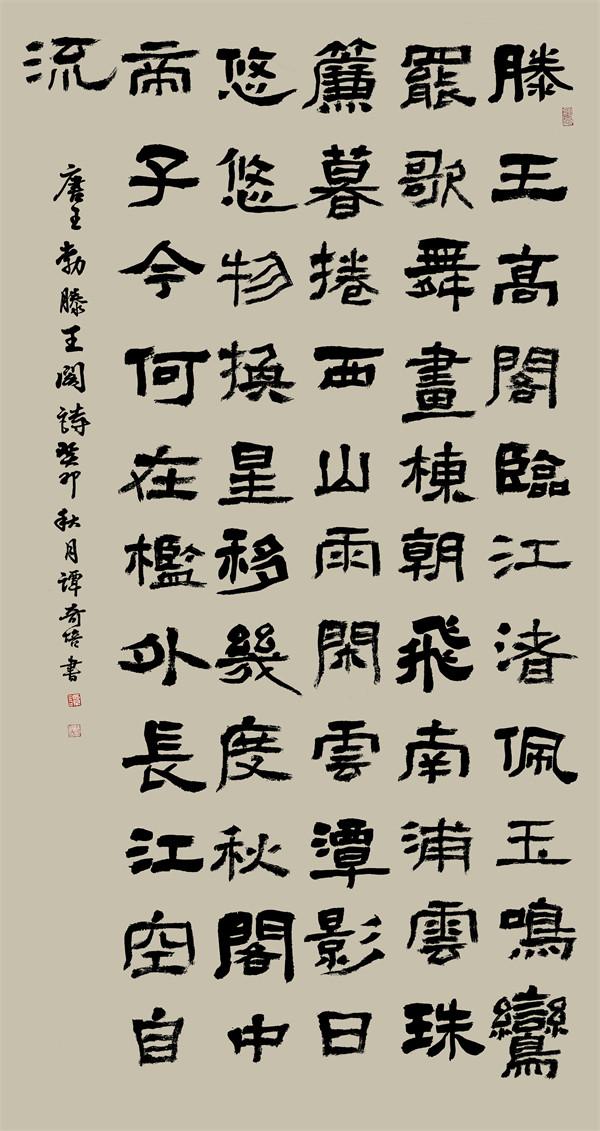 滕王高閣臨江渚佩玉鳴鸞
罷歌舞畫棟朝飛南浦雲珠
簾暮捲西山雨閑雲潭影日
悠悠物換星移幾度秋閣中
帝子今何在檻外長江空自
流
唐王勃滕王阁詩癸卯秋月譚奇悟書